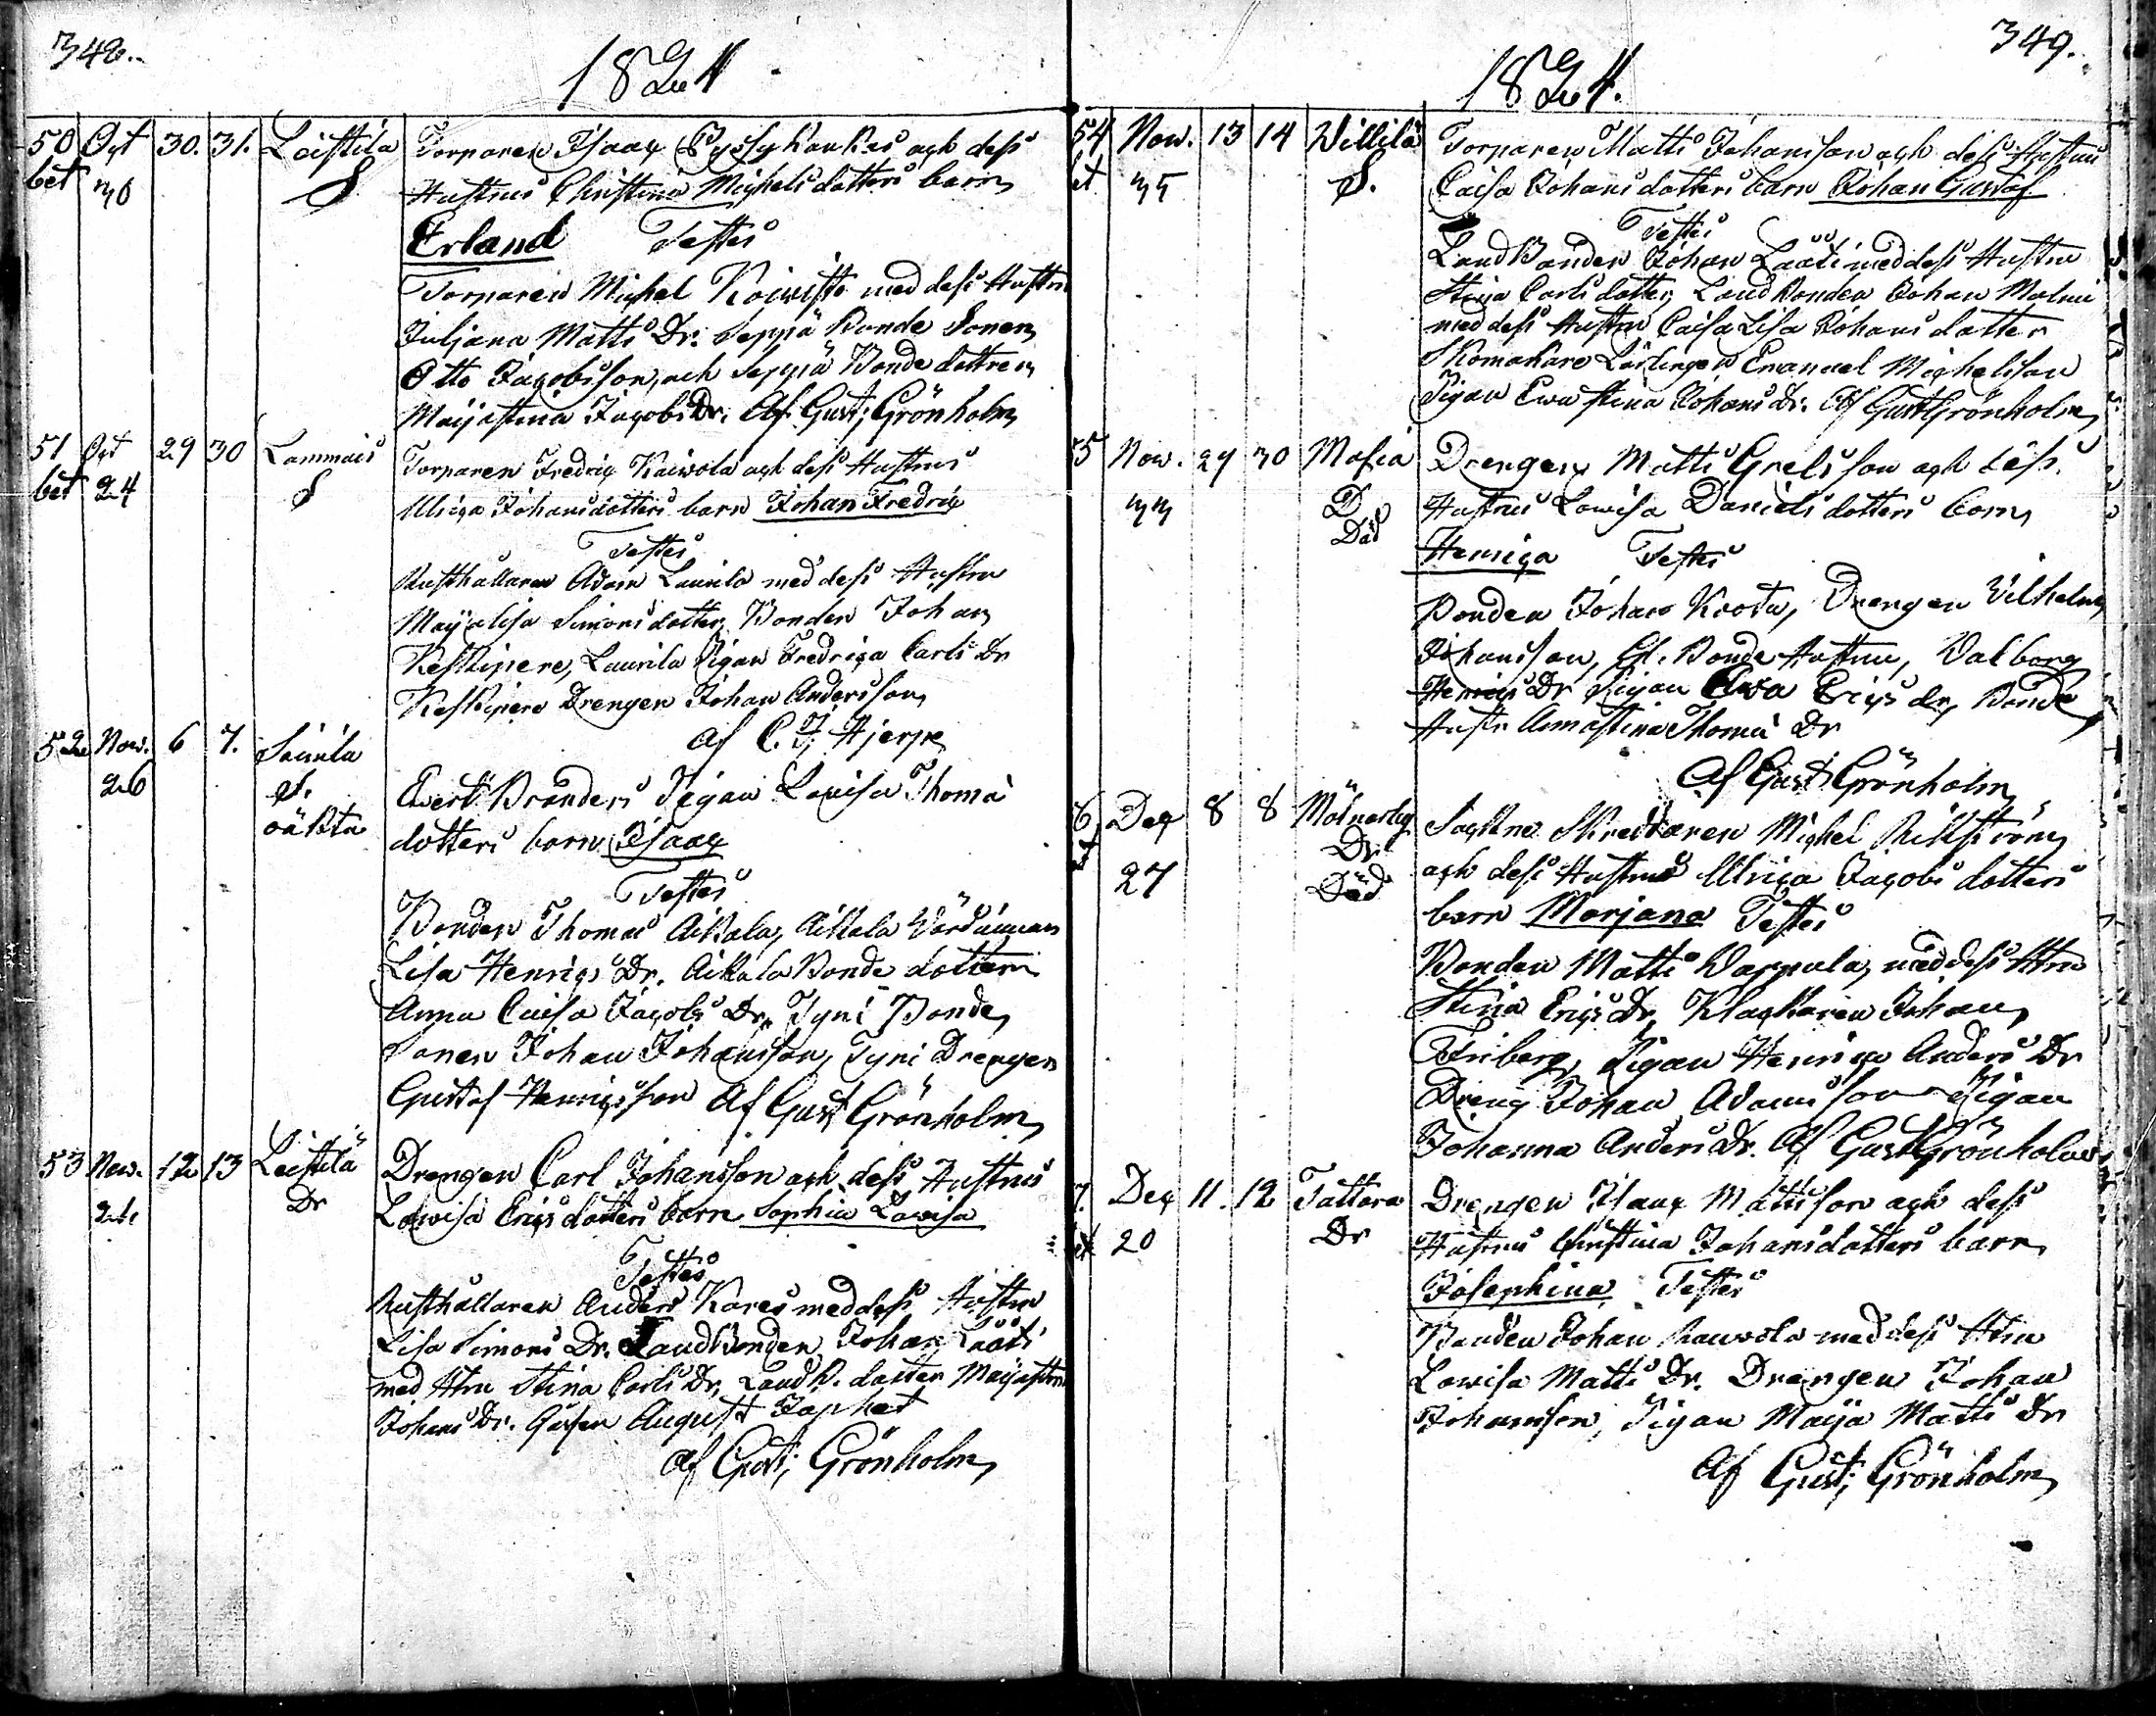 348.
1824
50 Oct 30. 31. Leistilä Torparen Isaac Pyssykankas och dess
bet 30 S Hustrus Christina Michelsdotters barn
Erland Testes
Torparen Michel Koivisto med dess Hustru
Juljana Matts Dr. Seppä Bonde Sonen
Otto Jacobsson, och Seppä Bonde dottren
Maijastina Jacobs Dr. Af Gust; Grönholm
51 Oct 29 30 Lammais Torparen Fredric Kaivola och dess Hustrus
bet 24 S Ulrica Johansdotters barn Johan Fredric
Testes
Rusthållaren Adam Laurila med dess Hustru
Maija Lisa Simonsdotter, Bonden Johan
Keskipere, Laurila Pigan Fredrica Carls Dr
Keskipere Drengen Johan Andersson
af C. J. Hjerpe
52 Nov. 6 7. Soinila Evert Branders Pigan Lovisa Thomä
26 S. dotters barn Isaac
oäkta
Testes
Bonden Thomas Aikala, Aikala Värdinnan
Lisa Henrics Dr. Aikala Bonde dottern
Anna Caisa Jacobs Dr, Tyni Bonde
Sonen Johan Johansson, Tyni Drengen
Gustaf Henricsson Af Gust Grönholm
53 Nov. 12 13 Leistilä Drengen Carl Johansson och dess Hustrus
Dr Lovisa Ericsdotters barn Sophia Lovisa
Testes
Rusthållaren Anders Kares med dess Hustru
Lisa Simons Dr. Landbonden Johan Lääti
med Hru Stina Carls Dr, Land B. dotter Maijastina
Johans Dr. August Japhet
Af Gust; Grönholm
349.
1824.
54 Nov. 13 14 Villilä Torparen Matts Johansson och dess Hustrus
et 35 S. Caisa Johansdotters barn Johan Gustaf
Testes
Land Bonden Johan Lääti med dess Hustru
Stina Carlsdotter, Landbonden Johan Malmi
med dess Hustru Caisa Lisa Johansdotter
Skomakare Lärlingen Emanuel Michelsson
Pigan Eva Stina Johans Dr. Af Gust Grönholm
5 Nov. 29 30 Masia Drengen Matts Grelsson och dess
33 D Hustrus Lovisa Danielsdotters barn
Död
Henrica Testes
Bonden Johan Knota, Drengen Vilhelm
Johansson, Gl. Bonde Hustrun, Valborg
Henrics Dr Pigan Eva Erics dr, Bonde
Hustr Annastina Thomä Dr
Af Gust Grönholm
6 Dec 8 8 Mölnorby Sockne Skreddaren Michel Rikström
et Dr och dess Hustrus Ulrica Jacobs dotters
27 Död barn Marjana Testes
Bonden Matts Vappula, med dess Hru
Stina Erics Dr, Klockaren Johan
Friberg, Pigan Henrica Anders Dr
Dreng Johan Adamsson Pigan
Johanna Anders Dr. Af Gust Grönholm
7. Dec 11. 12 Tattara Drengen Isaac Mattsson och dess
et 20 Dr Hustrus Christina Johansdotters barn
Josephina Testes
Bonden Johan Rauvola med dess Hru
Lovisa Matts Dr. Drengen Johan
Johansson, Pigan Maija Matts Dr
Af Gust; Grönholm